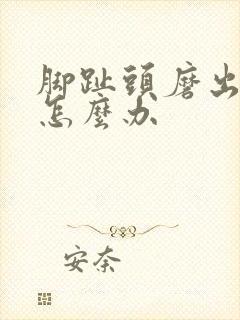 脚趾頭磨出
怎麼办
安奈